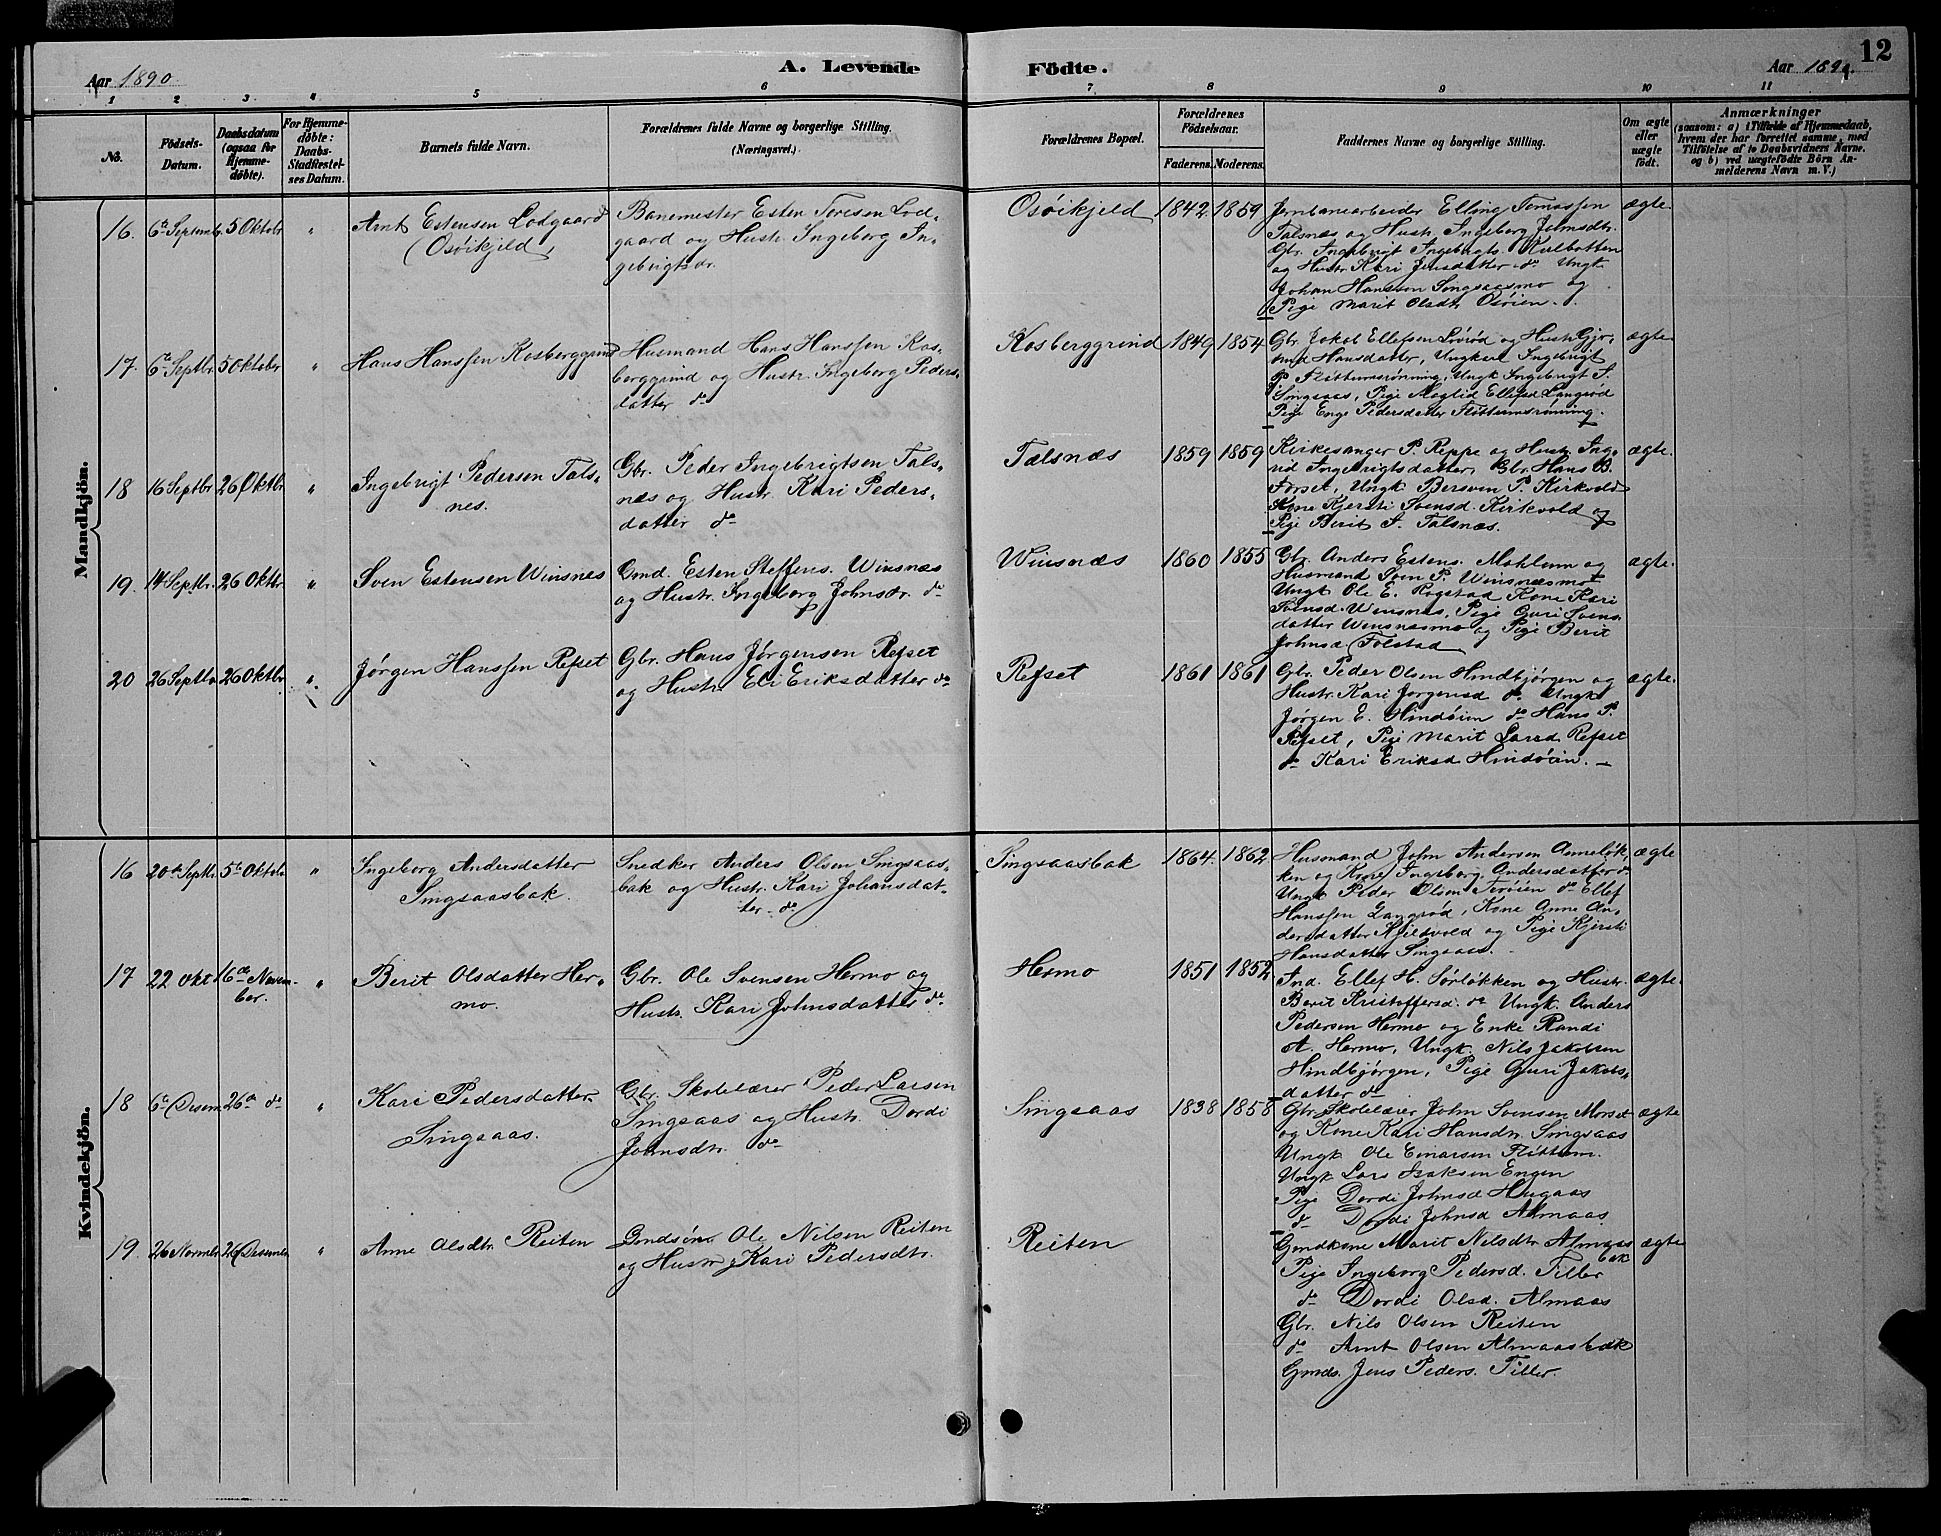 12
Aar 1890
A. Levende
Födte.
Aar 1890.
1 2 3 4 5 6 7 8 9 10 11
No.
Födsels-
Datum.
Daabsdatum
(ogsaa for
Hjemme-
döbte).
For Hjemme-
döbte:
Daabs-
Stadfæstel-
ses Datum.
Barnets fulde Navn.
Forældrenes fulde Navne og borgerlige Stilling.
(Næringsvei.)
Forældrenes Bopæl.
Forældrenes
Födselsaar.
Faderens. Moderens.
Faddernes Navne og borgerlige Stilling.
Om ægte
eller
uægte
født.
Anmærkninger
(saasom: a) i Tilfælde af Hjemmedaab,
hvem der har forrettet samme, med
Tilföielse af to Daabsvidners Navne.
og b) ved uægtefödte Börn An-
melderens Navn m. V.)
Mandkjön.
16. 6te Septembr. 5 Oktobr "
Arnt Estensen Lodgaard
(Osöikjeld
Banemester Esten Toresen Lod-
gaard og Hustr. Ingeborg In-
gebrigtsdr.
Osöikjeld 1842 1859
Jernbanearbeider Elling Tomassen
Talsnæs og Hustr. Ingeborg Johnsdtr.
Gbr. Ingebrigt Ingebrigts. Kulbotten
og Hustr. Kari Jensdatter do Ungk.
Johan Hanssen Singsaasmo og
Pige Marit Olsdtr. Osöien.
ægte.
17. 6te Septbr. 5 Oktober "
Hans Hanssen Kosberggrind
Husmand Hans Hanssen Kos-
berggrind og Hustr. Ingeborg Peders-
datter do
Kosberggrind 1849 1854
Gbr. Jakob Ellefsen og Hustr.
Hansdatter, Ungkarl Ingebrigt
P. Flöttumsrönning, Ungk Ingebrigt S.
Singsaas, Pige Magtid Ellefsd Langröd
Pige Enge Pedersdatter Flöttumsrönning.
ægte.
18 16 Septbr. 26 Oktbr. "
Ingebrigt Pedersen Tals-
nes.
Gbr. Peder Ingebrigtsen Tals-
næs og Hustr. Kari Peders-
datter do
Talsnæs 1859 1859
Kirkesanger P. Reppe og Hustr. Ing-
rid Ingebrigtsdatter, Gbr. Hans B.
Forset, Ungk Bersven P. Kirkvold
Kone Kjersti Svensd. Kirkvold og
Pige Berit S. Talsnæs.
ægte.
19. 14 Septbr. 26 Oktbr. "
Sven Estensen Winsnes
Gmd. Esten Steffens. Winsnæs
og Hustr. Ingeborg Johnsdr. do
Winsnæs 1860 1855
Gbr. Anders Estens. Mohlum og
Husmand Sven P. Winsnæsmo
Ungk Ole E. Rogstad Kone Kari
Svensd. Winsnæs, Pige Guri Svens-
datter Winsnæsmo og Pige Berit
Johnsd. Folstad
ægte.
20 26 Septbr 26 Oktbr. "
Jørgen Hanssen Refset
Gbr. Hans Jørgensen Refset
og Hustr. Eli Eriksdatter do
Refset 1861 1861
Gbr. Peder Olsen Hindbjørgen og
Hustr. Kari Jørgensd do Ungk.
Jørgen E. Hindöien do Hans P.
Refset, Pige Marit Larsd Refset
do Kari Eriksd Hindöien.
ægte.
Kvindekjön.
16 20de Septbr. 5te Oktobr "
Ingeborg Andersdatter
Singsaasbak.
Snedker Anders Olsen Singsaas-
bak og Hustr. Kari Johansdat-
ter do
Singsaasbak 1864. 1862
Husmand John Andersen Asmelök-
ken og Kone Ingeborg Andersdatter do
Ungk Peder Olsen Forøien do Ellef
Hanssen Langröd, Kone Anne An-
dersdatter Kjeldvold og Pige Kjersti
Hansdatter Singsaas.
ægte
17 22 Okt 16de Novem-
ber. "
Berit Olsdatter Her-
mo.
Gbr. Ole Svensen Hermo og
Hustr. Kari Johnsdatter do
Hermo 1851 1852
Ind. Ellef H. Sörløkken og Hustr.
Berit Kristoffersd. do Ungk. Anders
Pedersen Hermo og Enke Randi
A. Hermo, Ungk. Nils Jakobsen
Hindbjørgen, Pige Guri Jakobs-
datter do
ægte.
18 6te Desem 26de do "
Kari Pedersdatter
Singsaas.
Gbr. Skolelærer Peder Larsen
Singsaas og Hustr. Dordi
Johnsdtr. do
Singsaas 1838 1858
Gbr. Skolelærer John Svensen Morset
og Kone Kari Hansdtr. Singsaas
Ungk Ole Einarsen Flöttum.
Ungk Lars Isaksen Engen
Pige Dordi Johnsd Hugaas
do Dordi Johnsd Almaas
ægte
19. 26 Novmbr 26 Desembr "
Anne Olsdtr. Reiten
Gmdsön Ole Nilsen Reiten
og Hustr. Kari Pedersdtr.
Reiten
Gmdkone Marit Nilsdtr. Almaas
bak
Pige Ingeborg Pedersd. Tiller
do Dordi Olsd. Almaas
Gbr. Nils Olsen Reiten
do Arnt Olsen Almaasbak
Gmds. Jens Peders. Tiller.
ægte